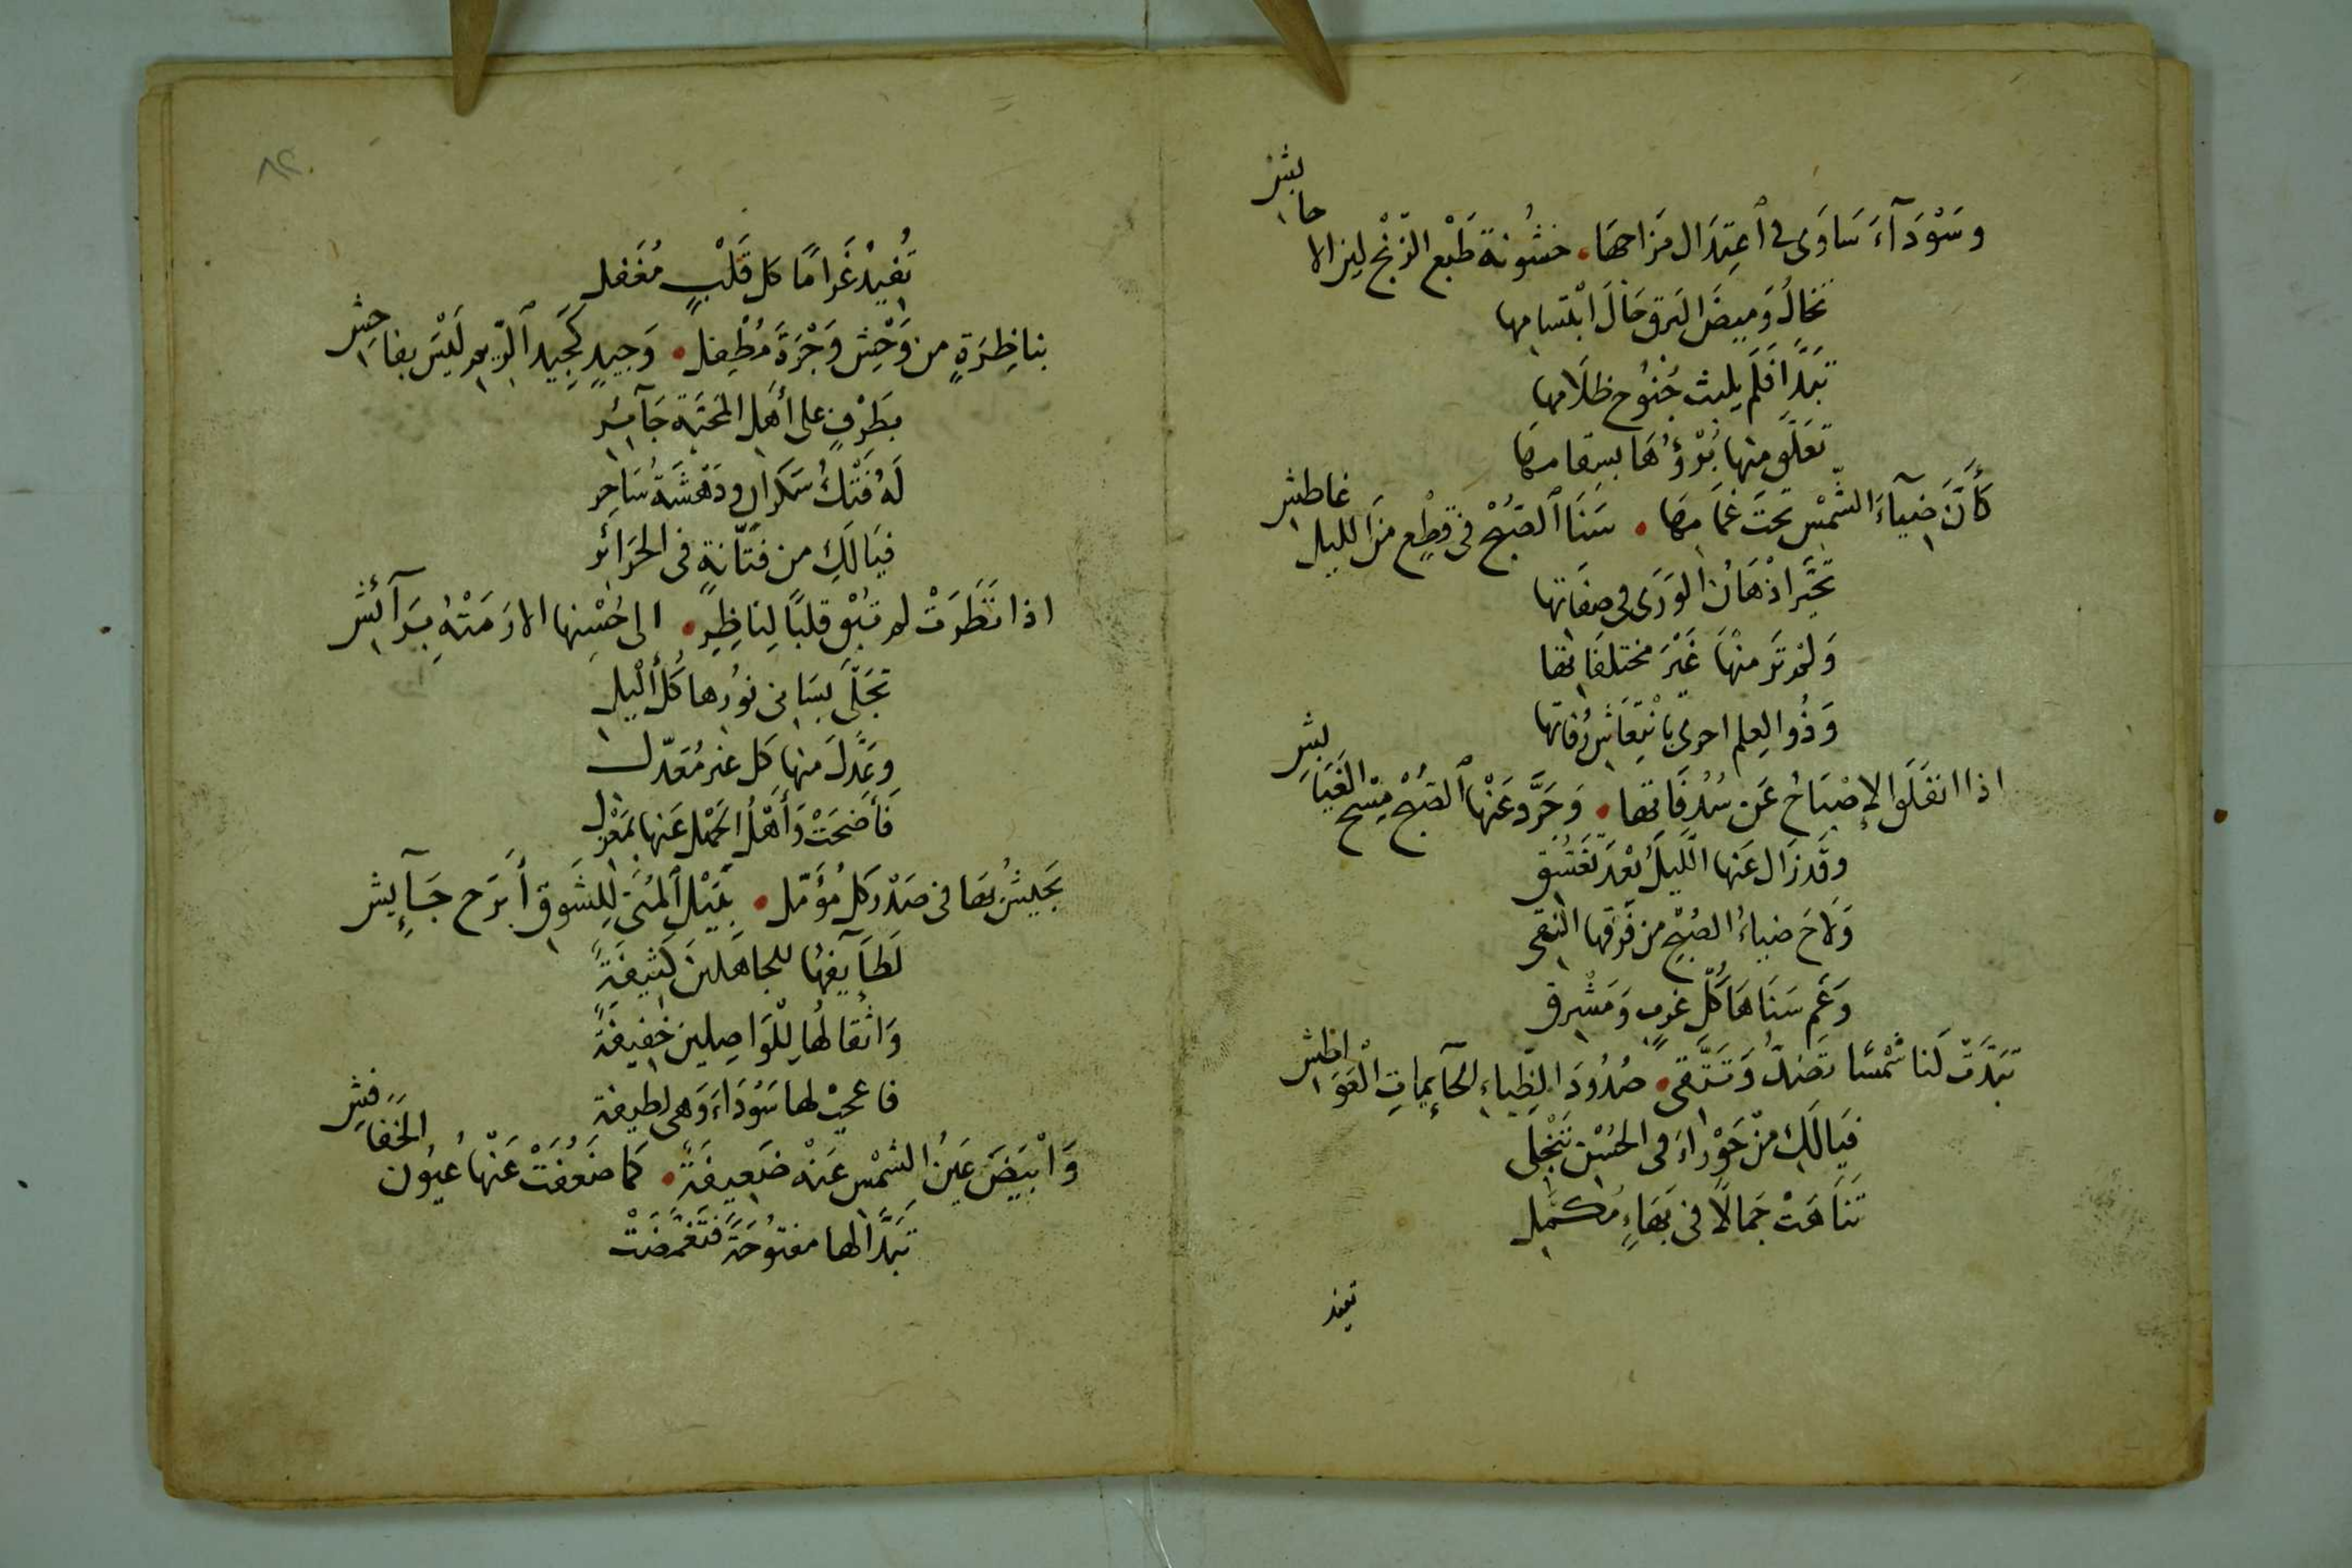 وَسَوْدَآءَ سَاوَى فى ٱعتِدَال مَزَاجهَا . خشُونة طَبْع الزنْج لين الاحابِشْ
تخَالُ وَمِيضَ البَرق خَالَ ابْتسامِها
تبَدَّا فَلَم يلبث جُنوُح ظلَامِها
تعَلَّق منها بُرْؤُهَا بسِقامِهَا
كَأَنَّ ضِيآءَ الشّمْس تحتَ غمَامِهَا . سَنَا ٱلصّبْح فى قِطْع مِنَ الليل غاطشِ
تحَيَّر اذْهَانُ الوَرَى فى صِفَاتها
وَلمْ تَر منْهَا غَيْرَ مختلفَاتها
وَذُو العِلم احرى بِانْتِعَاشِ رُفاتها
اذا انفَلَق الإصْبَاحُ عَن سُدُفَاتها . وَجَرَّدَ عَنْها ٱلصّبْح مِسْح الغَيَابشِ
وقَد زَال عَنها اللَّيلُ بُعْدَ تغَسُّق
وَلَاحَ ضياءُ الصُّبْح من فَرقها النقى
وَعَم سَنَاهَا كُلّ غربٍ وَمَشْرق
تبَدَّت لَنا شَمْسًا تصُدُّ وَتَتَّقى . صُدُودَ الظِّباءِ الحَآيِماتِ الْعَوَاطشِ
فيَالَكِ مِنْ حَوْراءَ فى الحُسْن تنْجَلى
تَنَاهَتْ جَمالًا فى بَهَاءٍ مُكمَّل
تفيد
٨٢
تُفيْدُ غَرَامًا كل قَلْبٍ مُغَفل
بنا ظِرَةٍ من وَحْشِ وَجْرَةَ مُطْفِل . وَجيدٍ كجِيد ٱلرّيم لَيْسَ بفاحِشِ
بطَرْفٍ على أَهْل المحَبّة جَآئِر
لَهُ فَتْكُ سَكرانٍ ودَهْشَةُ سَاحِر
فيَالَكِ من فتَّانةٍ فى الحَرَائر
اذا نَظَرَتْ لم تبْق قلبًا لِنَاظِرٍ . الى حُسْنها الا رَمَتْهُ بِرَآئشِ
تجَلَّى بسَامى نوُرها كُلُّ أَلْيل
وعَدَّلَ منها كل غير مُعَدّل
فَأضحَتْ وَأَهْلُ الجَهْل عَنها بمَعْزل
يَجيْشُ بها فى صَدْر كل مُؤَمّل . بنَيْل ٱلمُنَى لِلشَوق أَبرَح جَآيِشِ
لَطَآيِفُهُا للجاهلينَ كثيفَةً
وَاثْقالهُا لِلْوَاصِلينَ خفيفَةً
فاعجبْ لها سَوْدَاءَ وَهى لطيفة
وَابْيَضَ عَينُ الشَمْس عَنْهُ ضَعيفَةً . كما ضَعُفَتْ عَنْها عُيُون الخَفَافشِ
تَبَدَّا لها مفتوُحَةً فتغَمَّضَتْ